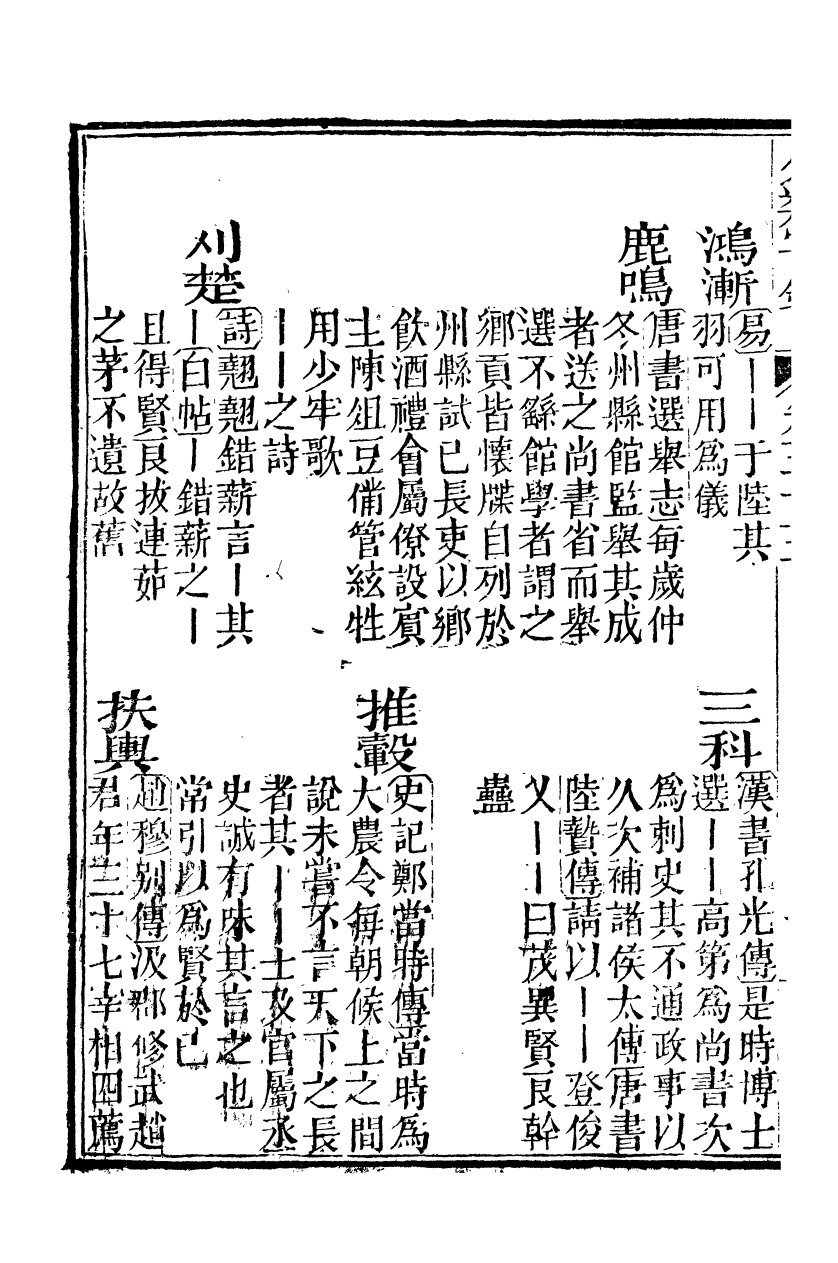 鴻漸
易｜｜于陸其
羽可用爲儀
鹿鳴
唐書選舉志每歲仲
冬州縣館監舉其成
者送之尚書省而舉
選不繇館學者謂之
鄉貢皆懷牒自列於
州縣試已長吏以鄉
飲酒禮會屬僚設賓
主陳俎豆備管絃牲
用少牢歌
｜｜之詩
刈楚
詩翹翹錯薪言｜其
｜白帖｜錯薪之｜
且得賢良拔連茹
之茅不遺故舊
三科
漢書孔光傳是時博士
選｜｜高第爲尚書次
爲刺史其不通政事以
久次補諸侯太傅唐書
陸贄傳請以｜｜登俊
乂｜｜曰茂異賢良幹
蠱
推轂
史記鄭當時傳當時爲
大農令每朝候上之間
說未嘗不言天下之長
者其｜｜士及官屬丞
史誠有味其言之也
常引以爲賢於已
扶輿
趙穆別傳汲郡修武趙
君年三十七宰相四薦